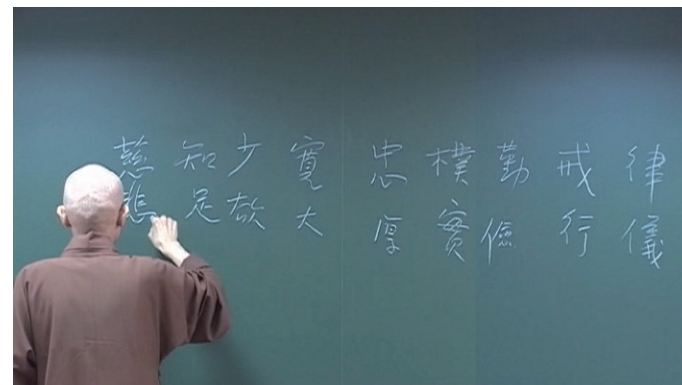 律儀
戒行
勤儉
樸實
忠厚
寬大
少欲
知足
慈悲